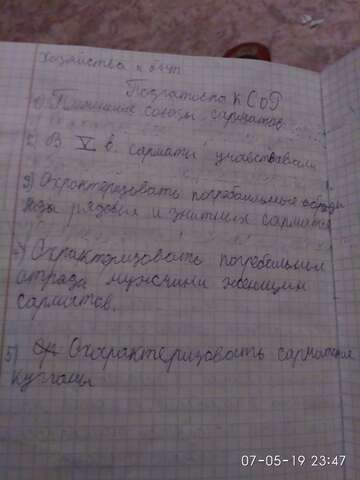 Хозяйства и быт
Подготовка к СоР
1) Племенные союзы сарматов
2) В V в. сарматы
3) Охрактеризовать погребальные обряды
рядовых и знатных сарматов
4) Охрактеризовать погребальные
отряда мужчины женщин
сарматов.
5) Охарактеризовать сарматские
курганы
07-05-19 23:47